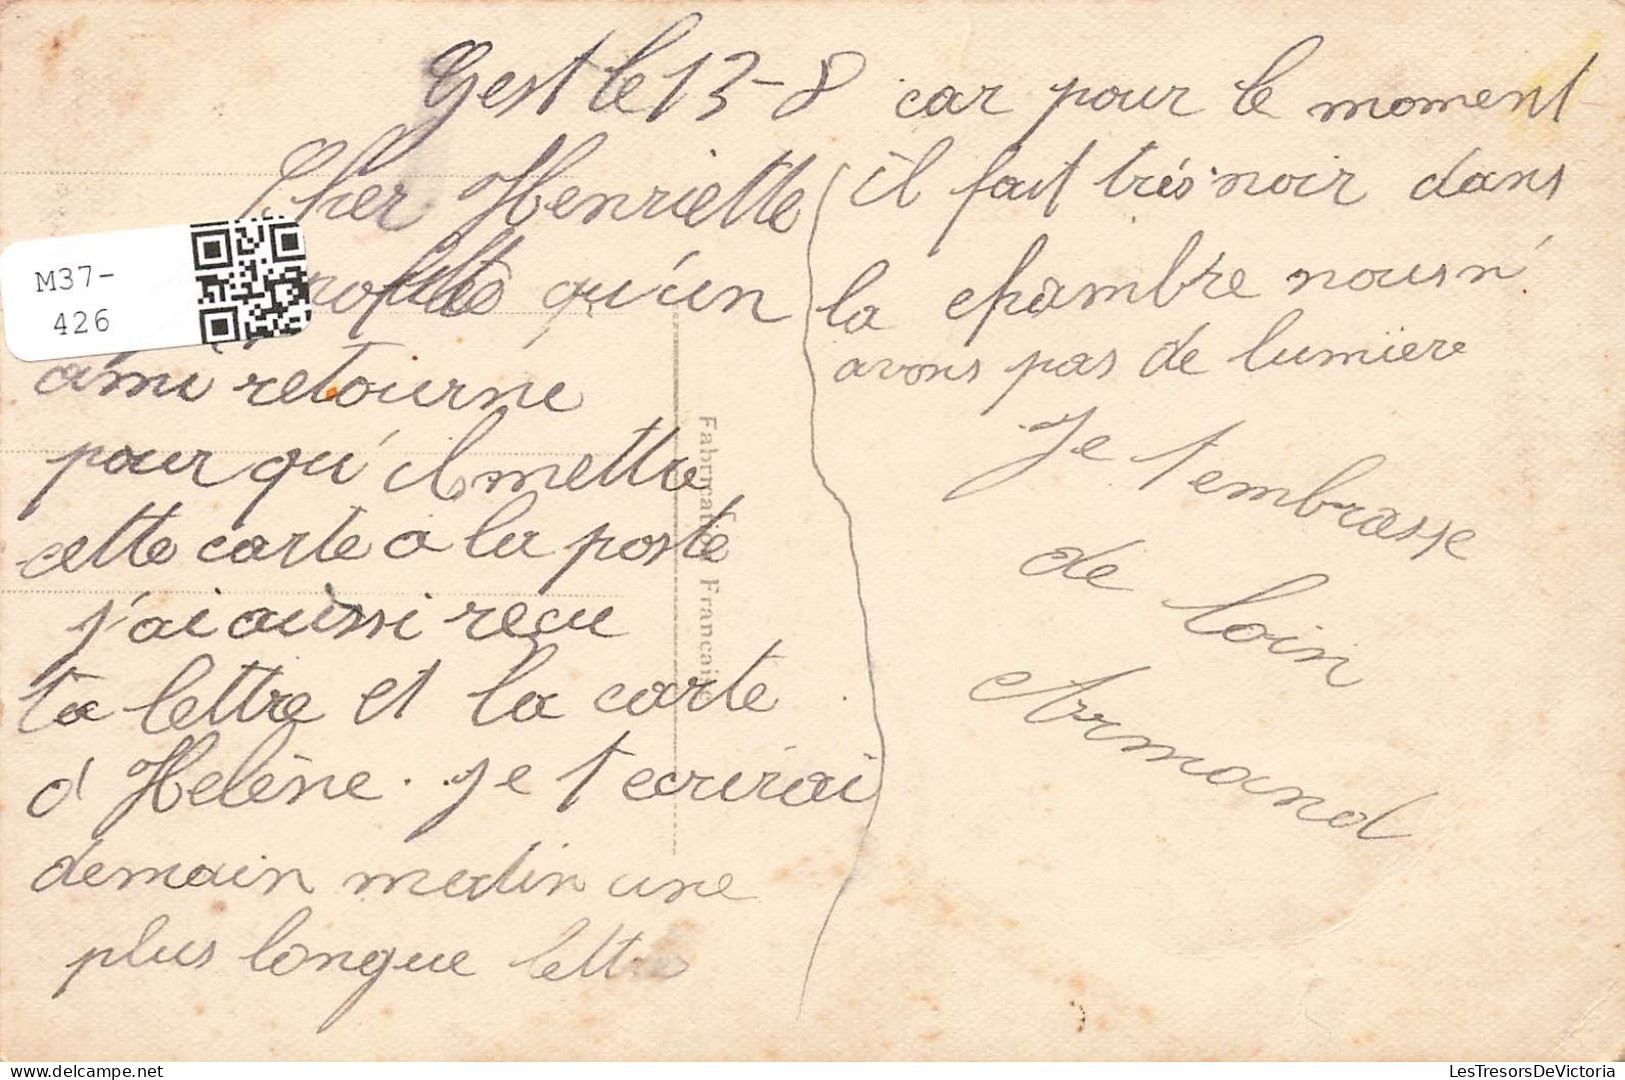 Gest le 13-8
Cher Henriette
profite qu'un
ami retourne
pour qu'il mettre
cette carte a la poste
j'ai aussi reçu
ta lettre et la carte
d'Helène. Je t'ecrirai
demain matin une
plus longue lettre
car pour le moment
il fait très noir dans
la chambre nous n'
avons pas de lumière
Je t'embrasse
de loin
Armand
Fabrication Française
M37-
426
LesTresorsDeVictoria